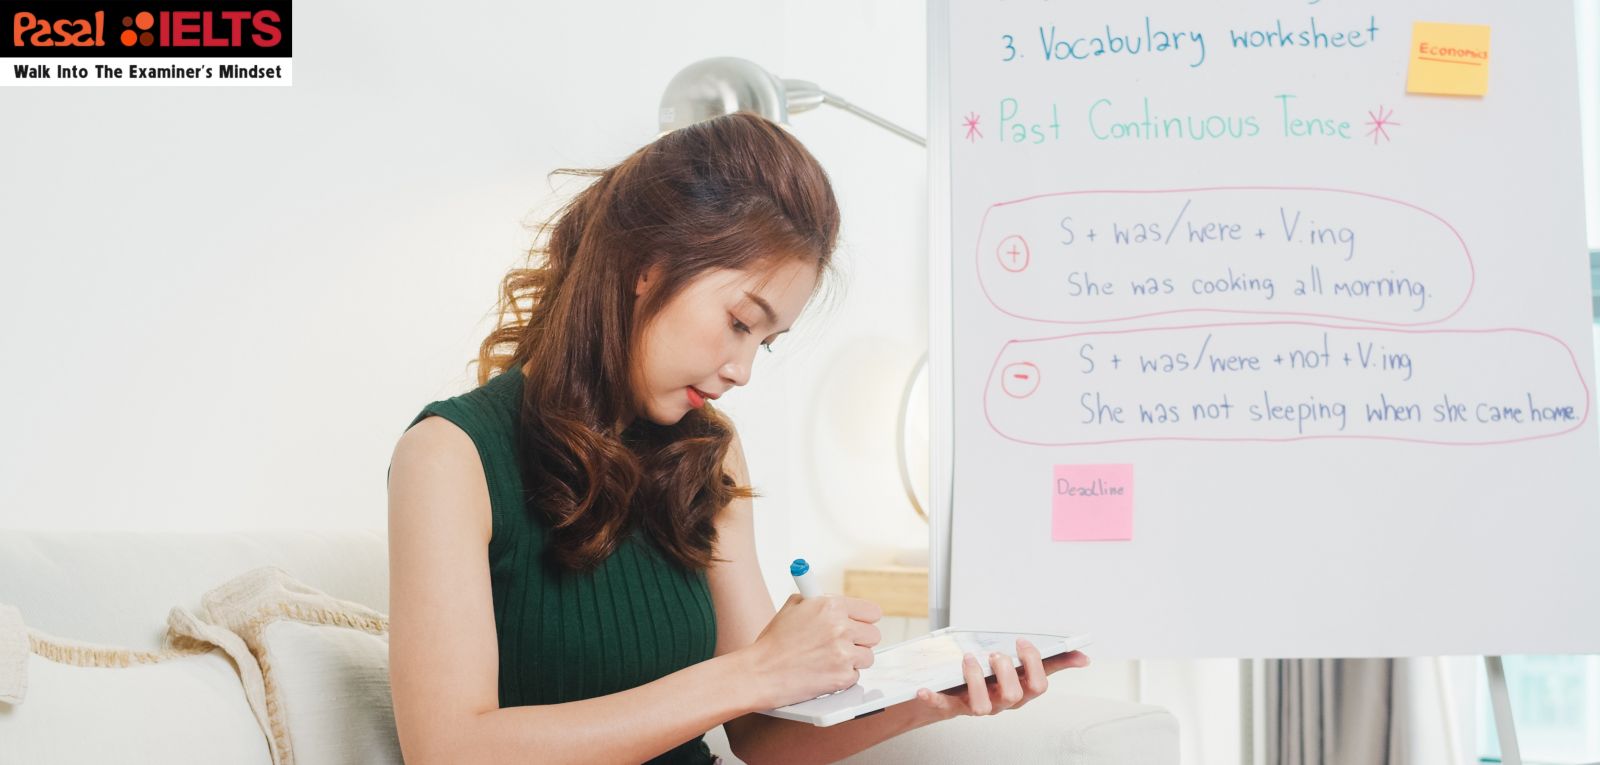 Pasal IELTS
Walk Into The Examiner's Mindset
3. Vocabulary worksheet
Economics
* Past Continuous Tense *
+ S + was/were + V.ing
She was cooking all morning.
- S + was/were + not + V.ing
She was not sleeping when she came home.
Deadline